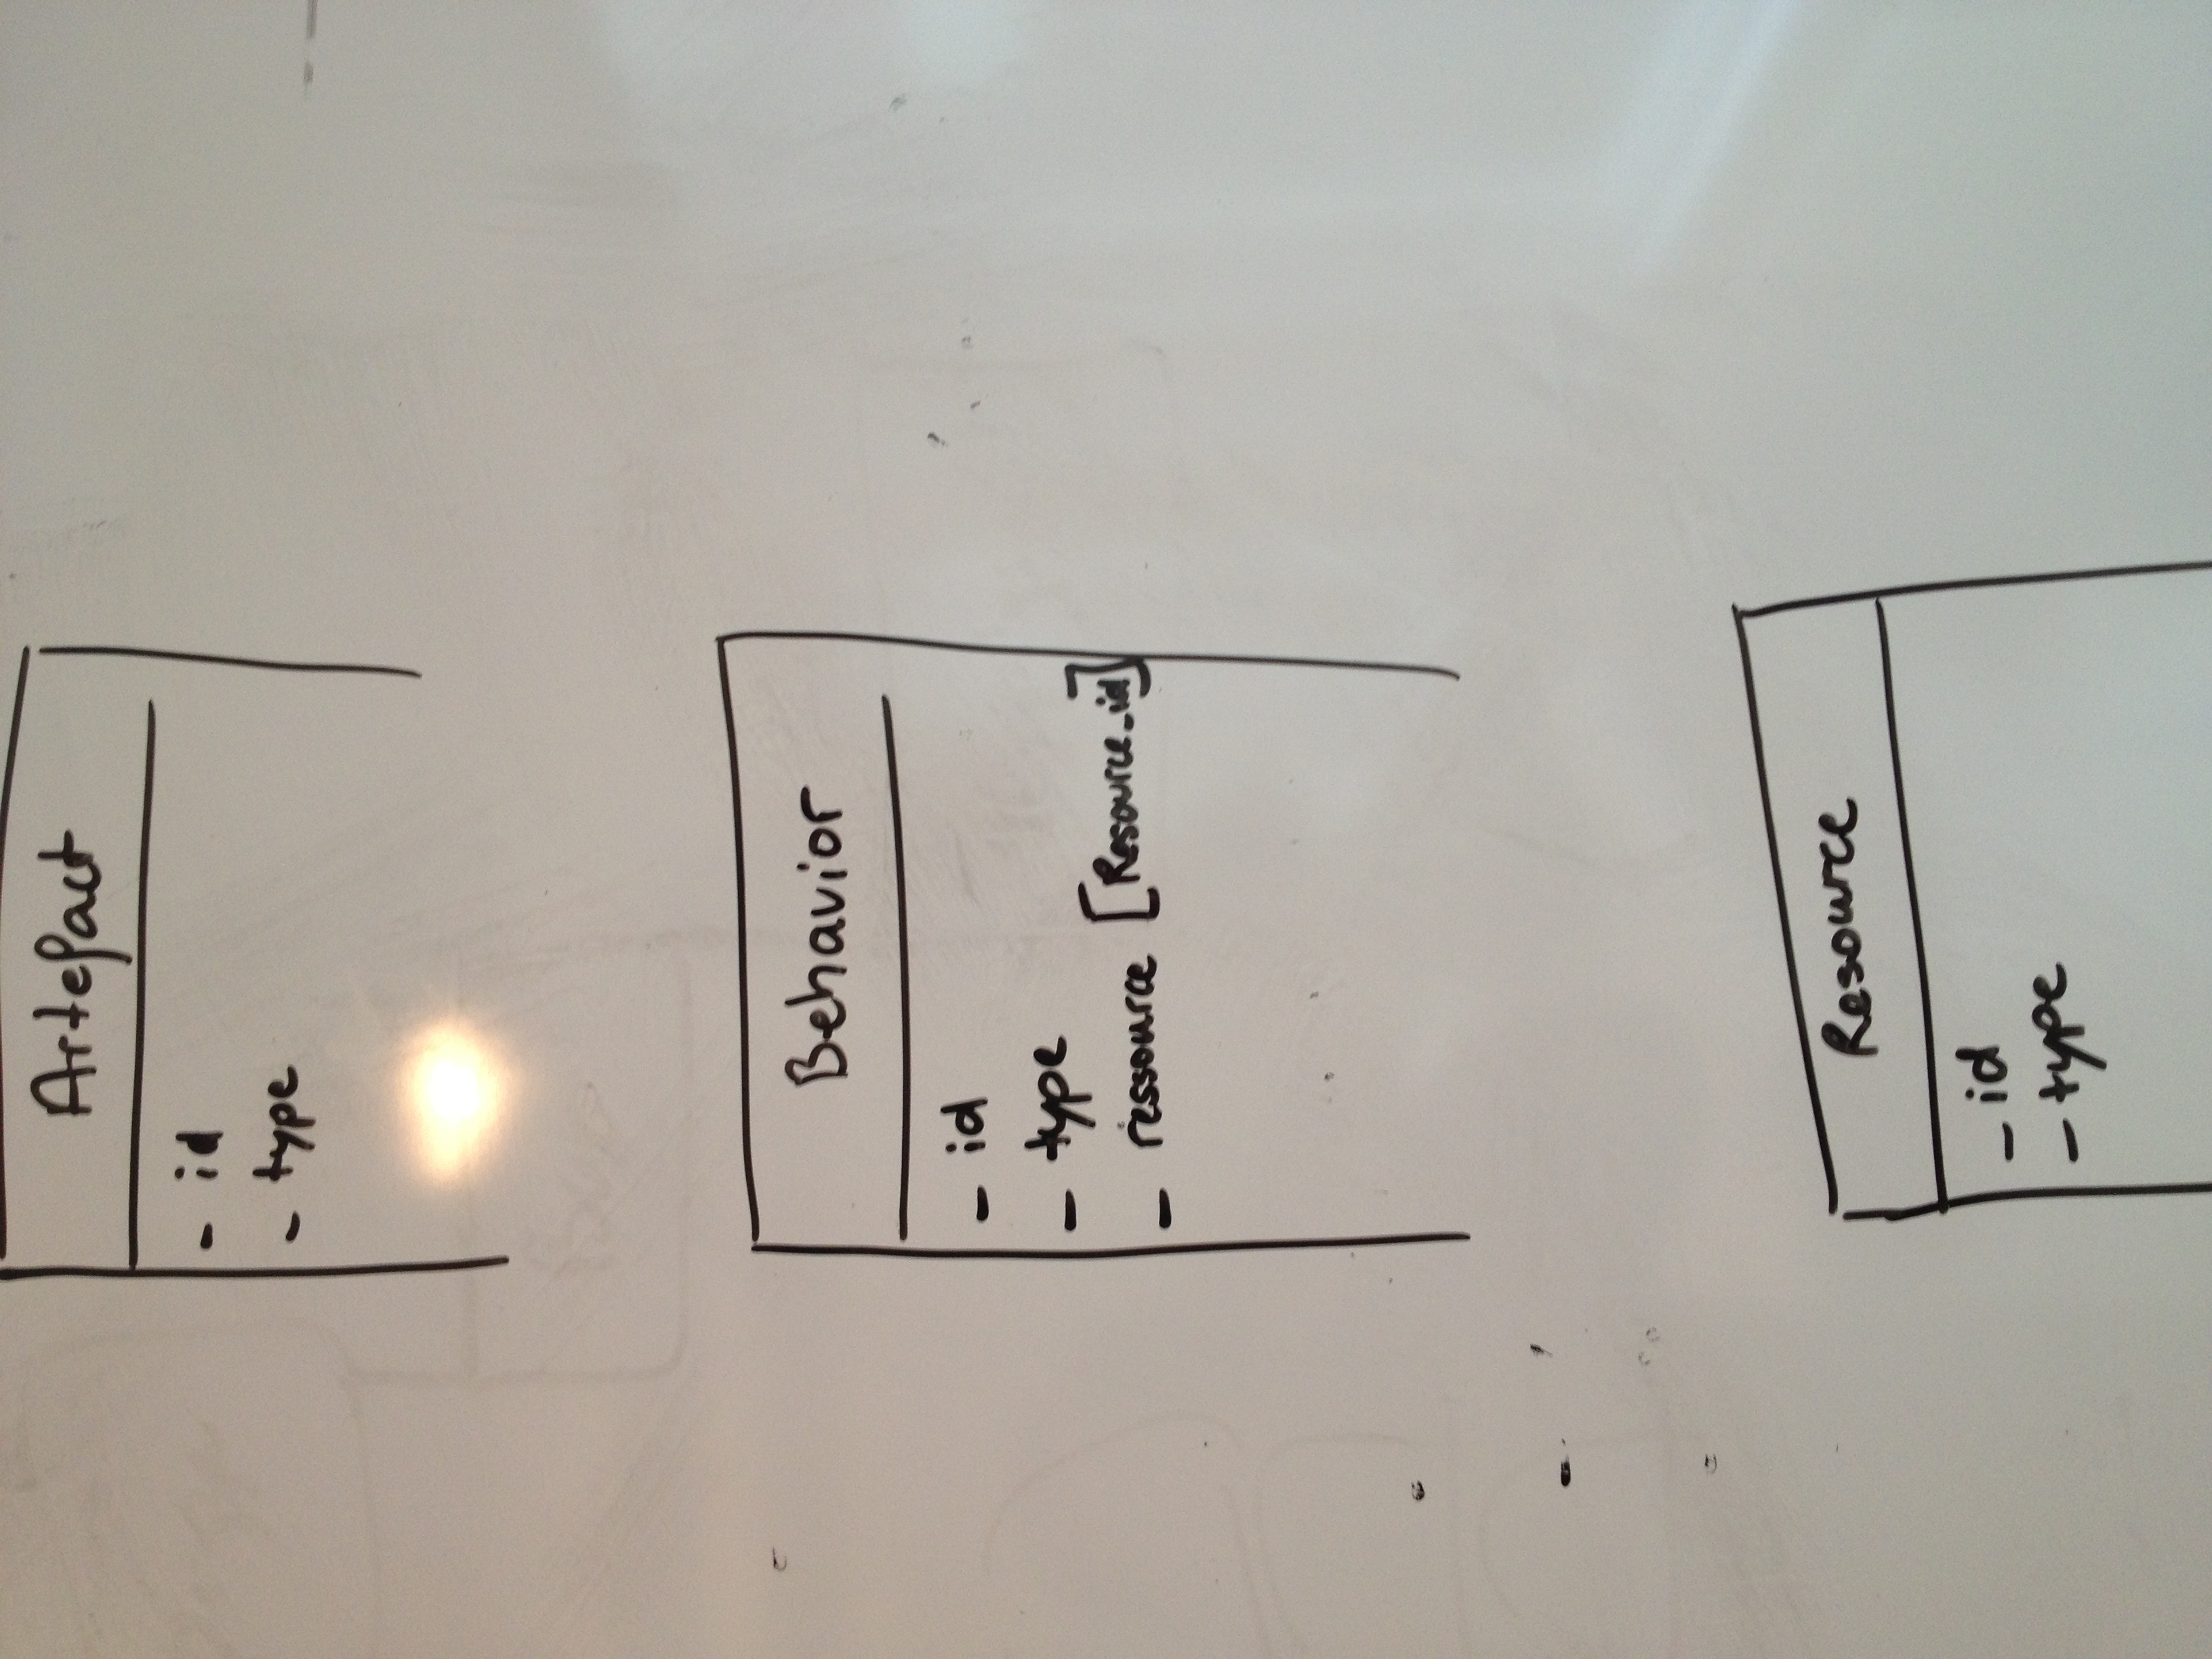 Artefact
- id
- type
Behavior
- id
- type
- ressource [Resource_id]
Resource
- id
- type